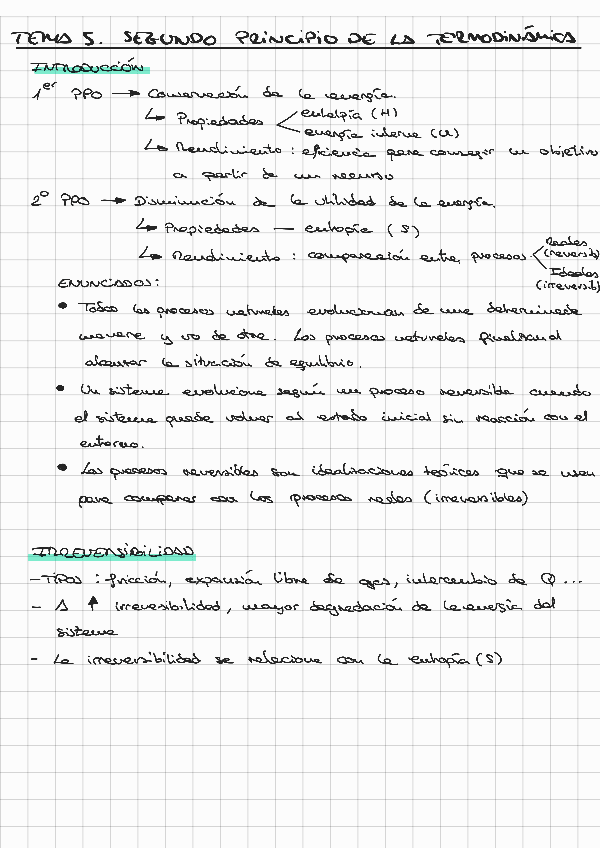 TEMA 5. SEGUNDO PRINCIPIO DE LA TERMODINÁMICA
INTRODUCCIÓN
1er PPO → Conservación de la energía.
↳ Propiedades < entalpía (H)
energía interna (U)
↳ Rendimiento : eficiencia para conseguir un objetivo
a partir de un recurso
2º PPO → Disminución de la utilidad de la energía.
↳ Propiedades — entropía (S)
↳ Rendimiento : comparación entre procesos < Reales
(reversib
Ideales
(irreversib)
ENUNCIADOS:
• Todos los procesos naturales evolucionan de una determinada
manera y no de otra. Los procesos naturales finalizan al
alcanzar la situación de equilibrio.
• Un sistema evoluciona según un proceso reversible cuando
el sistema puede volver al estado inicial sin reacción con el
entorno.
• Los procesos reversibles son idealizaciones teóricas que se usan
para comparar con los procesos reales (irreversibles)
IRREVERSIBILIDAD
- TIPOS : fricción, expansión libre de gas, intercambio de Q ...
- A ↑ irreversibilidad, mayor degradación de la energía del
sistema
- La irreversibilidad se relaciona con la entropía (S)